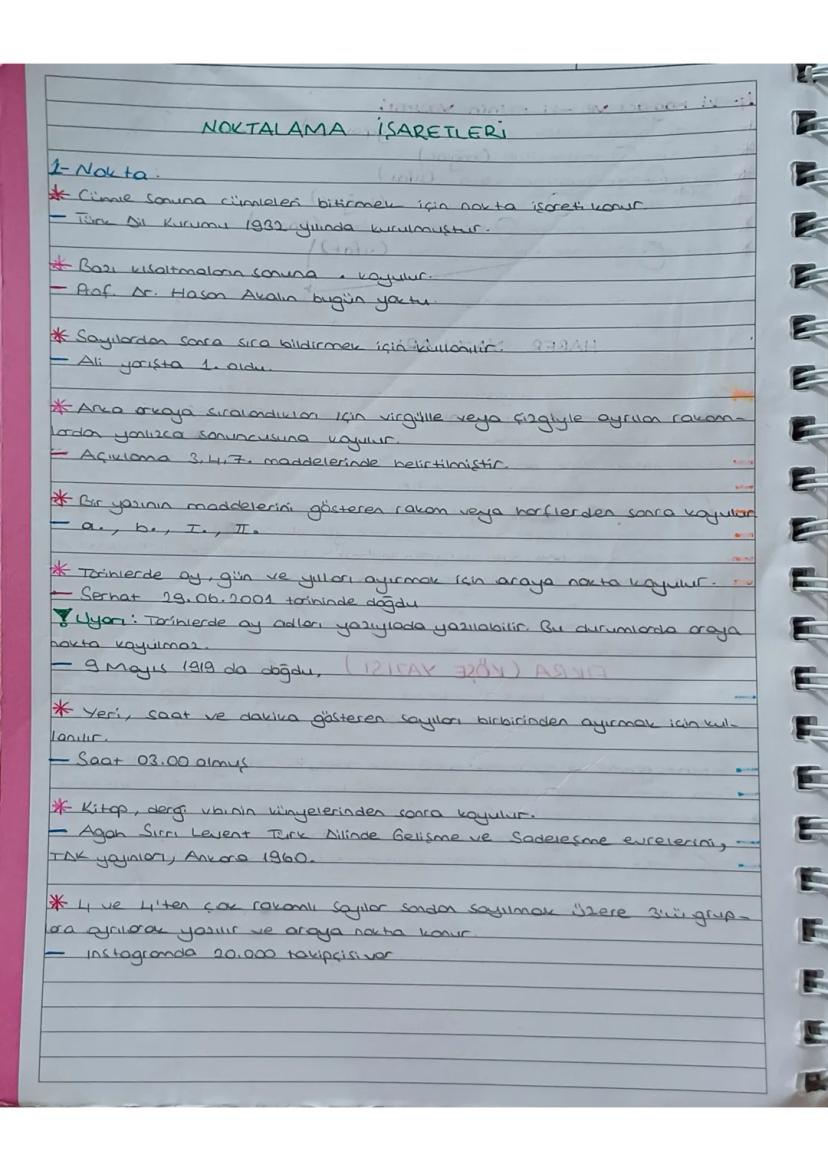 NOKTALAMA İŞARETLERİ
1- Nokta:
* Cümle sonuna cümleleri bitirmek için nokta işareti konur.
- Türk Dil Kurumu 1932 yılında kurulmuştur.
* Bazı kısaltmaların sonuna . koyulur.
- Prof. Dr. Hasan Akalın bugün yoktu.
* Sayılardan sonra sıra bildirmek için kullanılır.
- Ali yarışta 1. oldu.
* Arka arkaya sıralandıkları için virgülle veya çizgiyle ayrılan rakam-
lardan yanlızca sonuncusuna koyulur.
- Açıklama 3,4,7. maddelerinde belirtilmiştir.
* Bir yazının maddelerini gösteren rakam veya harflerden sonra koyulur
- a., b., I., II.
* Tarihlerde ay, gün ve yılları ayırmak için araya nokta koyulur.
- Serhat 29.06.2001 tarihinde doğdu
Uyarı: Tarihlerde ay adları yazıylada yazılabilir. Bu durumlarda araya
nokta koyulmaz.
- 9 Mayıs 1919 da doğdu.
* Yeri, saat ve dakika gösteren sayıları birbirinden ayırmak için kul-
lanılır.
- Saat 03.00 olmuş
* Kitap, dergi vb.nin künyelerinden sonra koyulur.
- Agah Sırrı Levent Türk Dilinde Gelişme ve Sadeleşme evrelerini,
TDK yayınları, Ankara 1960.
* 4 ve 4'ten çok rakamlı sayılar sondan sayılmak üzere 3'lü grup-
lara ayrılarak yazılır ve araya nokta konur.
- instagramda 20.000 takipçisi var